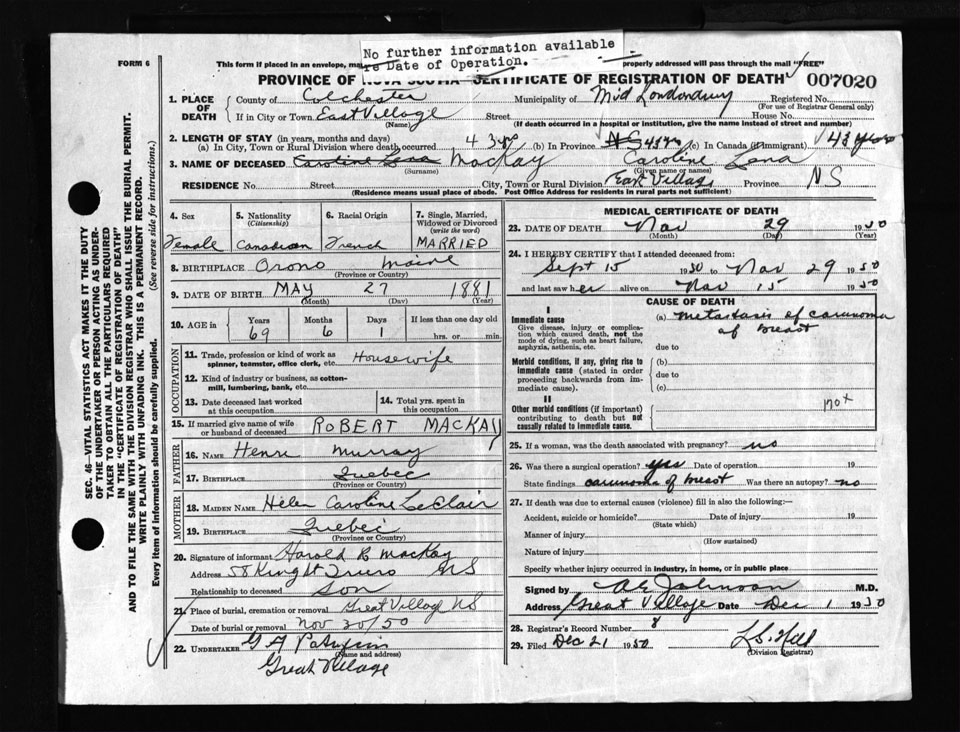 No further information available
re Date of Operation.
FORM 6
This form if placed in an envelope, properly addressed will pass through the mail "FREE"
PROVINCE OF NOVA SCOTIA CERTIFICATE OF REGISTRATION OF DEATH
007020
1. PLACE OF DEATH
County of Colchester Municipality of Mid Londonderry Registered No.
(For use of Registrar General only)
If in City or Town East Village Street House No.
(Name) (If death occurred in a hospital or institution, give the name instead of street and number)
2. LENGTH OF STAY (in years, months and days)
(a) In City, Town or Rural Division where death occurred 43 yrs (b) In Province NS 43 yrs (c) In Canada (if immigrant) 43 years
3. NAME OF DECEASED Caroline Lena MacKay Caroline Lena
(Surname) (Given name or names)
RESIDENCE No. Street City, Town or Rural Division East Village Province NS
(Residence means usual place of abode. Post Office Address for residents in rural parts not sufficient)
SEC. 46—VITAL STATISTICS ACT MAKES IT THE DUTY
OF THE UNDERTAKER OR PERSON ACTING AS UNDERTAKER
TO OBTAIN ALL THE PARTICULARS REQUIRED
IN THE "CERTIFICATE OF REGISTRATION OF DEATH"
AND TO FILE THE SAME WITH THE DIVISION REGISTRAR WHO SHALL ISSUE THE BURIAL PERMIT.
WRITE PLAINLY WITH UNFADING INK. THIS IS A PERMANENT RECORD.
Every item of information should be carefully supplied. (See reverse side for instructions.)
4. Sex Female
5. Nationality (Citizenship) Canadian
6. Racial Origin French
7. Single, Married, Widowed or Divorced (write the word) MARRIED
8. BIRTHPLACE Orono Maine
(Province or Country)
9. DATE OF BIRTH MAY 27 1881
(Month) (Day) (Year)
10. AGE in Years Months Days If less than one day old
69 6 1 hrs. or min.
OCCUPATION
11. Trade, profession or kind of work as spinner, teamster, office clerk, etc. Housewife
12. Kind of industry or business, as cotton-mill, lumbering, bank, etc.
13. Date deceased last worked at this occupation
14. Total yrs. spent in this occupation
15. If married give name of wife or husband of deceased ROBERT MACKAY
FATHER
16. NAME Henri Murray
17. BIRTHPLACE Quebec
(Province or Country)
MOTHER
18. MAIDEN NAME Helen Caroline LeClair
19. BIRTHPLACE Quebec
(Province or Country)
20. Signature of informant Harold R MacKay
Address 58 King St Truro NS
Relationship to deceased Son
21. Place of burial, cremation or removal Great Village NS
Date of burial or removal Nov 30/50
22. UNDERTAKER
(Name and address)
Great Village
MEDICAL CERTIFICATE OF DEATH
23. DATE OF DEATH Nov 29 1950
(Month) (Day) (Year)
24. I HEREBY CERTIFY that I attended deceased from:
Sept 15 1950 to Nov 29 1950
and last saw her alive on Nov 15 1950
CAUSE OF DEATH
I
Immediate cause
Give disease, injury or complication which caused death, not the mode of dying, such as heart failure, asphyxia, asthenia, etc.
(a) Metastasis of carcinoma of breast
due to
Morbid conditions, if any, giving rise to immediate cause (stated in order proceeding backwards from immediate cause).
(b)
due to
(c)
II
Other morbid conditions (if important) contributing to death but not causally related to immediate cause.
170x
25. If a woman, was the death associated with pregnancy? no
26. Was there a surgical operation? yes Date of operation 19
State findings carcinoma of breast Was there an autopsy? no
27. If death was due to external causes (violence) fill in also the following:—
Accident, suicide or homicide? Date of injury 19
(State which)
Manner of injury
(How sustained)
Nature of injury
Specify whether injury occurred in industry, in home, or in public place
Signed by Johnson M.D.
Address Great Village Date Dec 1 1950
28. Registrar's Record Number 8
29. Filed Dec 21 1950
(Division Registrar)